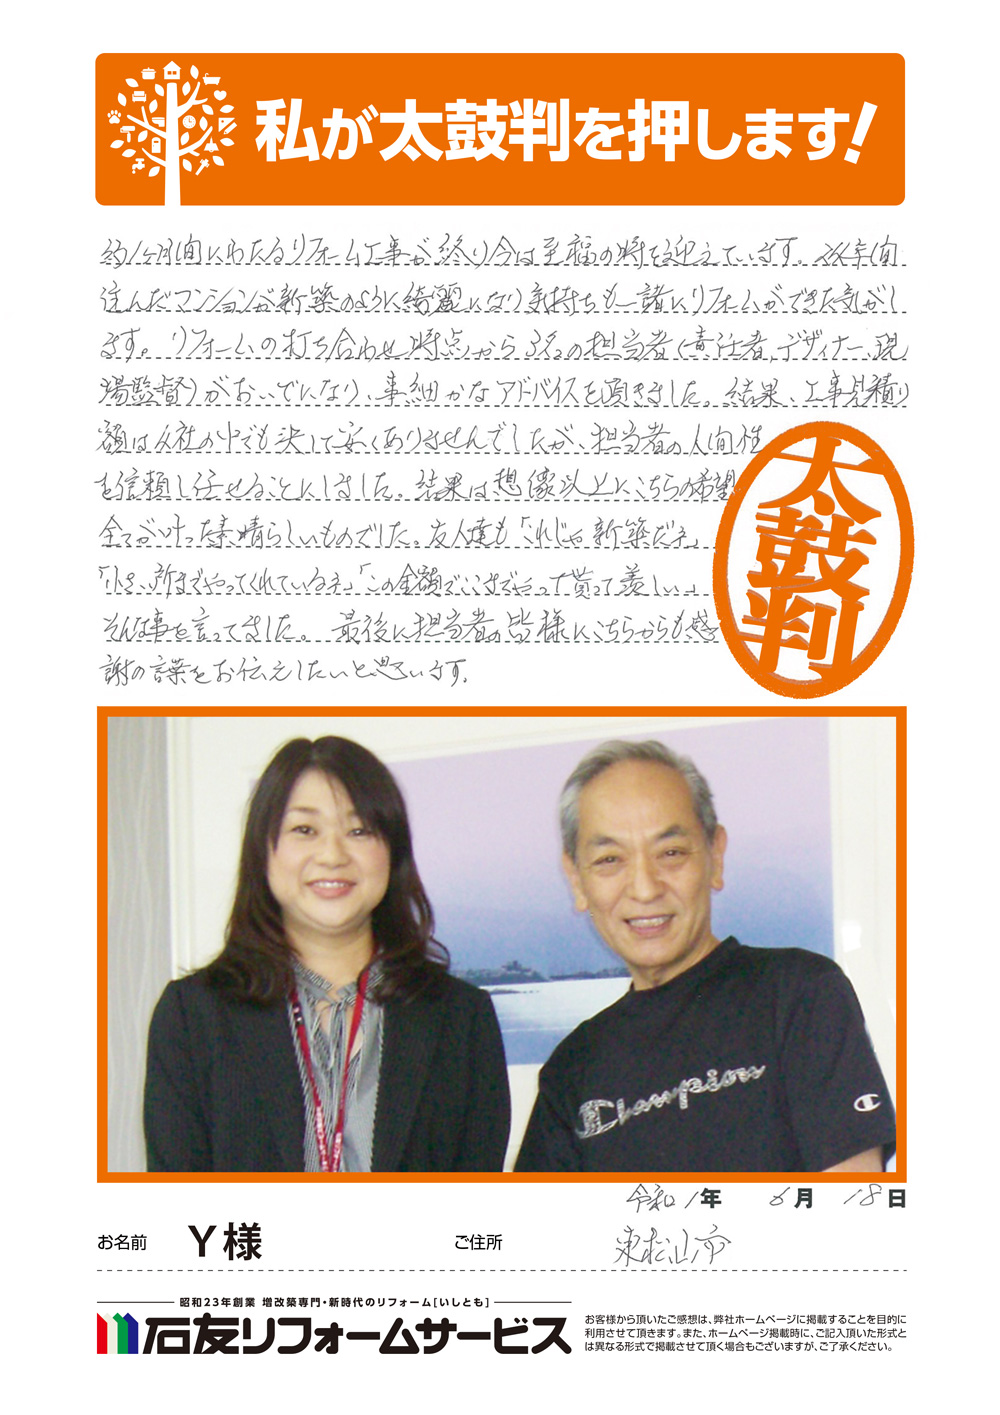 私が太鼓判を押します!
約1ヶ月間にわたるリフォーム工事が終り今は至福の時を迎えています。 年間
住んだマンションが新築のように綺麗になり気持ちも一諸にリフォームができた気がし
ます。 リフォームの打ち合わせ時点から3名の担当者(責任者、デザイナー、現
場監督)がおいでになり、事細かなアドバイスを頂きました。結果、工事見積り
額は 社の中でも決して安くありませんでしたが、担当者の人間性
を信頼し任せることにしました。結果は想像以上にこちらの希望
全てが叶った素晴らしいものでした。友人達も「これじゃ新築だネ」
「 所までやってくれているネ」「この金額でここまでやって貰って羨しい」
そんな事を言ってました。 最後に担当者の皆様にこちらからも感
謝の言葉をお伝えしたいと思います。
太鼓判
Champion
令和1年 6月 18日
お名前 Y様 ご住所 東松山市
昭和23年創業 増改築専門・新時代のリフォーム[いしとも]
石友リフォームサービス
お客様から頂いたご感想は、弊社ホームページに掲載することを目的に
利用させて頂きます。また、ホームページ掲載時に、ご記入頂いた形式と
は異なる形式で掲載させて頂く場合もございますが、ご了承ください。